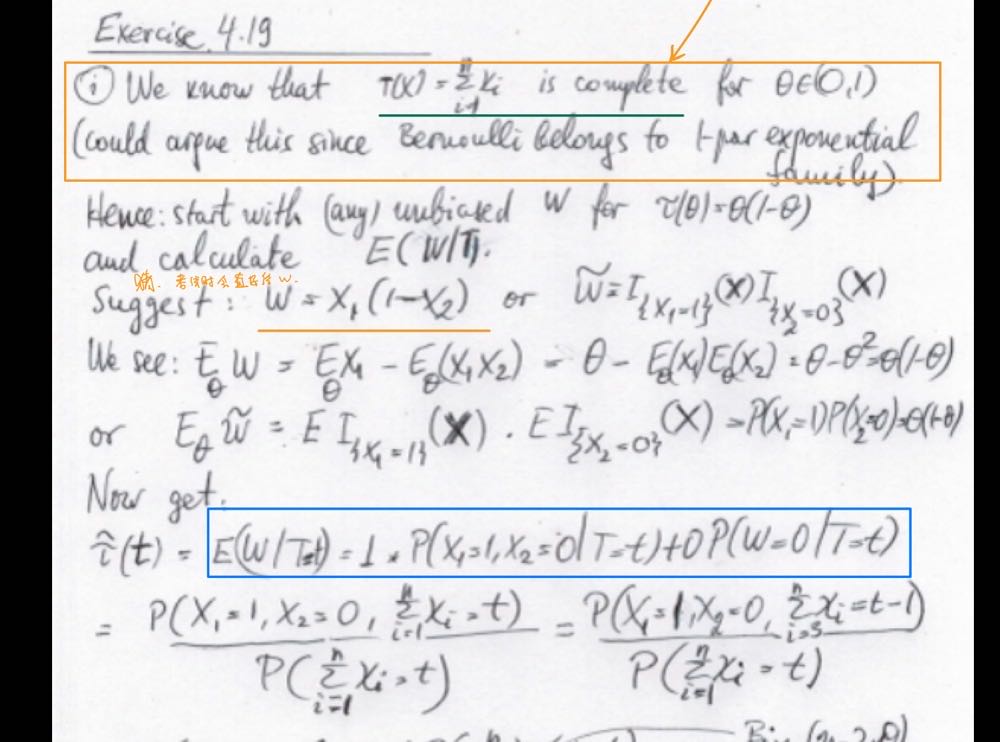 Exercise 4.19
(i) We know that T(X) = Σ_{i=1}^{n} X_i is complete for θ∈(0,1)
(could argue this since Bernoulli belongs to 1-par exponential
family).
Hence: start with (any) unbiased W for τ(θ)=θ(1-θ)
and calculate E(W/T).
考试时会直接给 W.
Suggest: W = X_1 (1-X_2) or W̃ = I_{X_1=1}(X) I_{X_2=0}(X)
We see: E_θ W = E_θ X_1 - E_θ(X_1 X_2) = θ - E_θ(X_1)E_θ(X_2) = θ-θ²=θ(1-θ)
or E_θ W̃ = E I_{X_1=1}(X) . E I_{X_2=0}(X) = P(X_1=1)P(X_2=0)=θ(1-θ)
Now get.
τ̂(t) = E(W/T=t) = 1 * P(X_1=1, X_2=0/T=t)+0 P(W=0/T=t)
= P(X_1=1, X_2=0, Σ_{i=1}^{n} X_i=t) / P(Σ_{i=1}^{n} X_i=t) = P(X_1=1, X_2=0, Σ_{i=3}^{n} X_i=t-1) / P(Σ_{i=1}^{n} X_i=t)